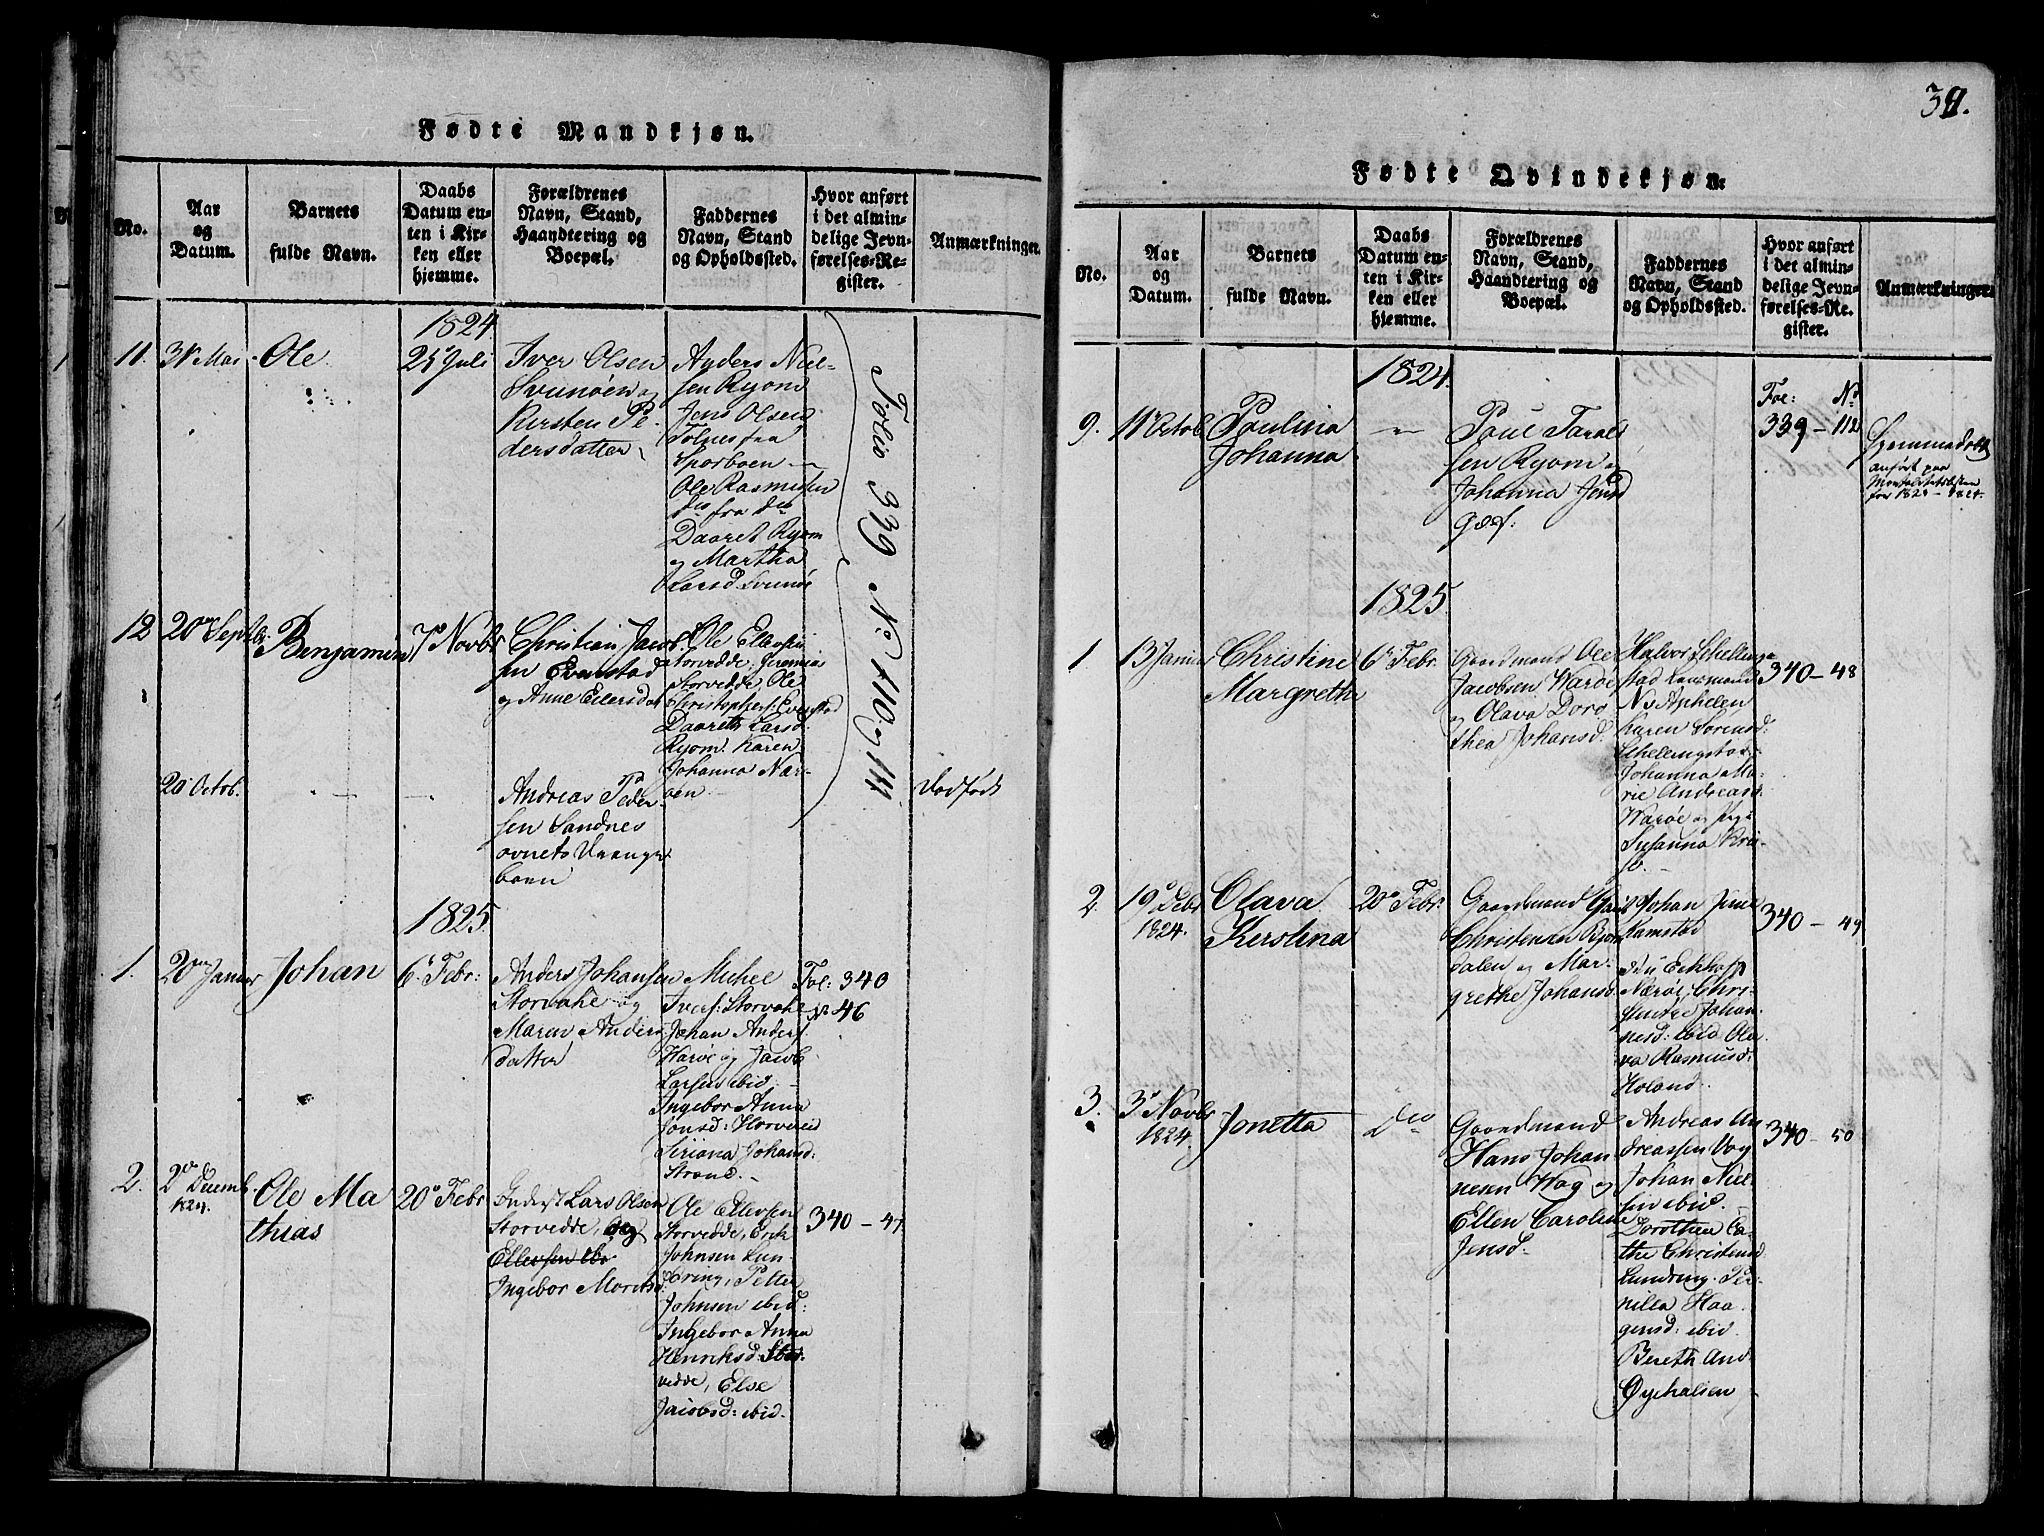 Fødte Mandkjøn.
No.
Aar
og
Datum.
Barnets
fulde Navn.
Daabs
Datum en-
ten i Kir-
ken eller
hjemme.
Forældrenes
Navn, Stand,
Haandtering og
Boepæl.
Faddernes
Navn, Stand
og Opholdssted.
Hvor anført
i det almin-
delige Jevn-
førelses-Re-
gister.
Anmærkninger.
1824
11.
31 Mai
Ole
25 Juli
Iver Olsen
Svinöen og
Kirsten Pe-
dersdatter
Anders Niel-
sen Ryom
Jens Olsen
fra
Sparboen
Ole Rasmussen
do fra do
Daaret Ryom
og Martha
Larsd. Svinöe
Folio 339 No 110 og 111
12
20 Septbr:
Benjamin
7 Novbr
Christian Jacob-
sen Evenstad
og Anne Eilersdat
Ole Ellevsen
Storvedde, Jeremias
Storvedde Ole
Christophers: Evenstad
Daareth Larsd.
Ryom. Karen
Johanna Nær-
öen.
20 Octob.
Andreas Peder-
sen Sandnes
Dödfödt
1825.
1.
20 Januar
Johan
6 Febr:
Anders Johansen
Storvahl og
Maren Anders
datter
Michel
Ivers: Storvahl
Johan Anders.
og Jacob
Larsen ibid:
Ingebor Anna
Jonsd: Horvereid
Siriana Johansd:
Strand.
Fol: 340
No 46
2.
2 Decemb.
1824.
Ole Ma
thias
20 Febr
Lars Olsen
Storvedde, og
Ellevsen
Ingebor Moritsd.
Ole Ellevsen
Storvedde, Erik
Johnsen Lun-
dring, Petter
Johnsen ibid:
Ingebor Anna
Henriksd: Stor-
vedde, Else
Jacobsd: ibid.
340 - 47
39.
Fødte Qvindekjøn.
No.
Aar
og
Datum.
Barnets
fulde Navn.
Daabs
Datum en-
ten i Kir-
ken eller
hjemme.
Forældrenes
Navn, Stand,
Haandtering og
Boepæl.
Faddernes
Navn, Stand
og Opholdssted.
Hvor anført
i det almin-
delige Jevn-
førelses-Re-
gister.
Anmærkninger.
1824.
Fol: No
9.
11 Octob
Paulina
Johanna
Poul Tarald
sen Ryom og
Johanna Jensd
339 - 112
Hjemmedöbt
anfört paa
for 1824
1825.
1
13 Januar
Christine
Margreth
6 Febr.
Gaardmand Ole
Jacobsen Waröe
og Olava Doro
thea Johansd.
Halvor Schellings
stad Landmand
Karen Sörensd:
Johanna Ma-
rie Andreasd.
Waröe og
Susanna
340 - 48
2.
19 Decbr
1824.
Olava
Kerstina
20 Febr:
Gaardmand
Christensen
dalen og Mar-
grethe Johansd.
Johan
Ramstad
Nærøe, Chri-
stine Johan-
nesd: ibid Ola-
va Rasmusd:
Holand.
340 - 49
3.
3 Novbr
1824.
Jonetta
Do
Gaardmand
Hans Johan
nesen Wog og
Ellen Caroline
Jensd.
Andreas An
dreassen Vog
Johan Niel
sen ibid.
Dorothea Ca-
thr Christensd
Lundring. Per-
nilla Haa-
gensd: ibid.
Bereth And
340 - 50